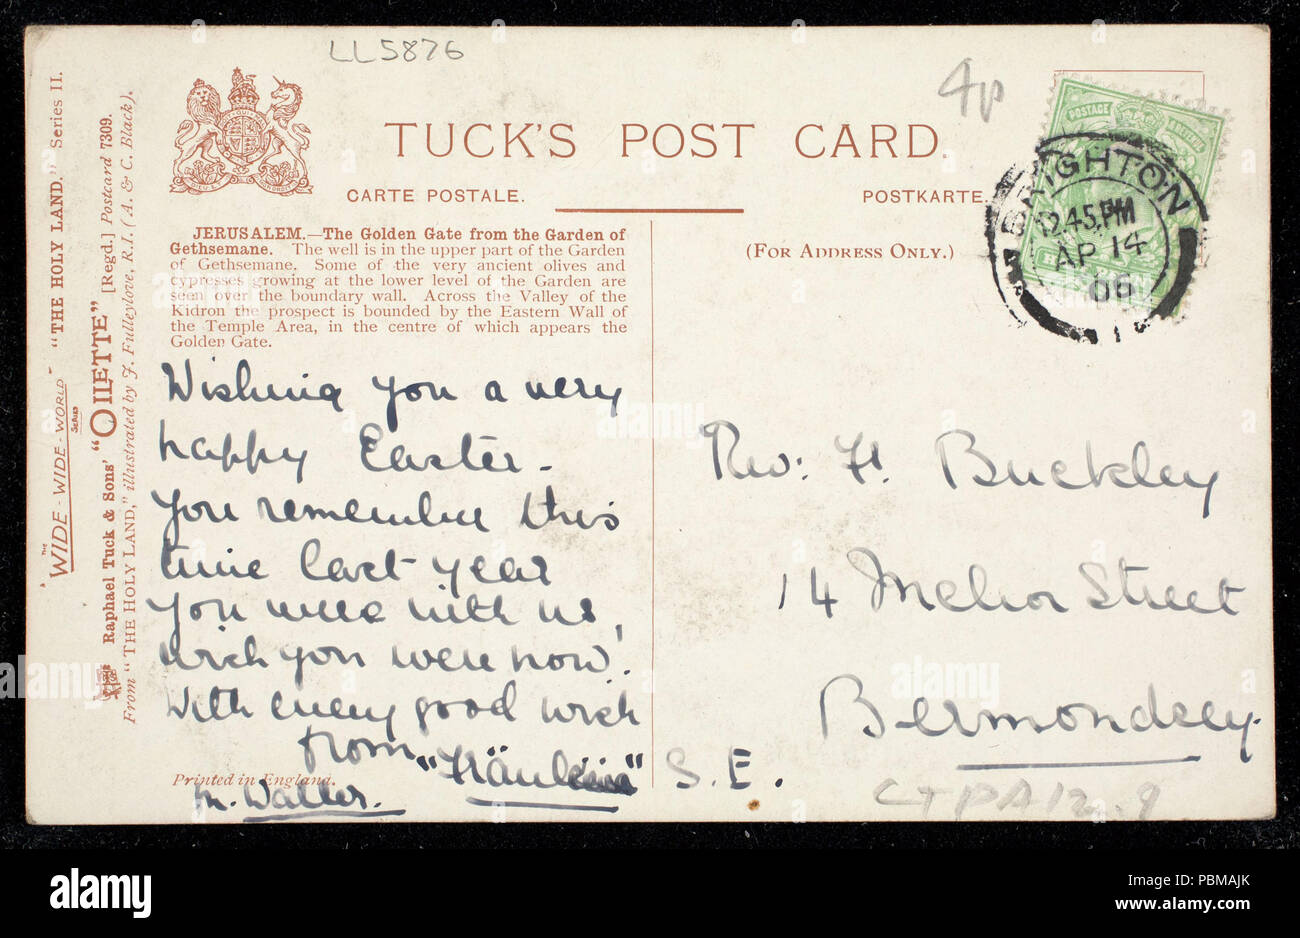 LL5876
4p
TUCK'S POST CARD.
CARTE POSTALE.
POSTKARTE.
(FOR ADDRESS ONLY.)
BRIGHTON
12.45.PM
AP 14
06
POSTAGE
"THE HOLY LAND." Series II.
THE
"WIDE-WIDE-WORLD"
SERIES
Raphael Tuck & Sons' "OILETTE" [Regd.] Postcard 7309.
From "THE HOLY LAND," illustrated by J. Fulleylove, R.I. (A. & C. Black).
JERUSALEM.—The Golden Gate from the Garden of
Gethsemane. The well is in the upper part of the Garden
of Gethsemane. Some of the very ancient olives and
cypresses growing at the lower level of the Garden are
seen over the boundary wall. Across the Valley of the
Kidron the prospect is bounded by the Eastern Wall of
the Temple Area, in the centre of which appears the
Golden Gate.
Wishing you a very
happy Easter -
You remember this
time last year
you were with us,
wish you were now!
With every good wish
from "Fräulein"
M. Waller.
Printed in England.
Rev: H. Buckley
14 Melior Street
Bermondsey.
S.E.
CTPA12.9
alamy
alamy
Image ID: PBMAJK
www.alamy.com